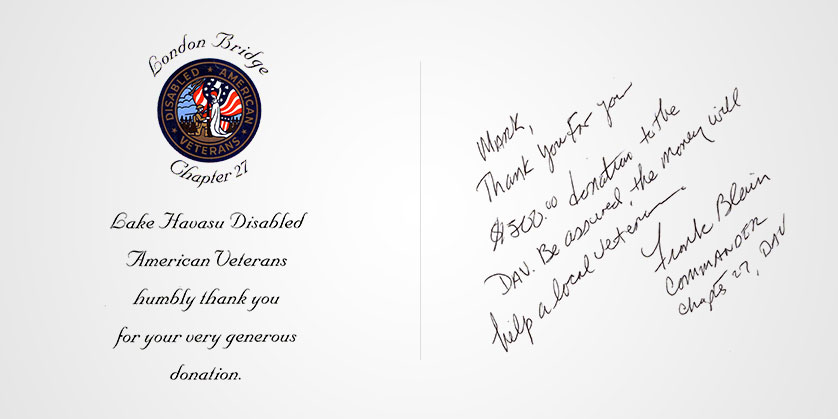 London Bridge
DISABLED AMERICAN
VETERANS
Chapter 27
Lake Havasu Disabled
American Veterans
humbly thank you
for your very generous
donation.
MARK,
Thank you For you
$500.00 donation to the
DAV. Be assured, the money will
help a local veteran.
Frank Blain
COMMANDER
Chapter 27, DAV